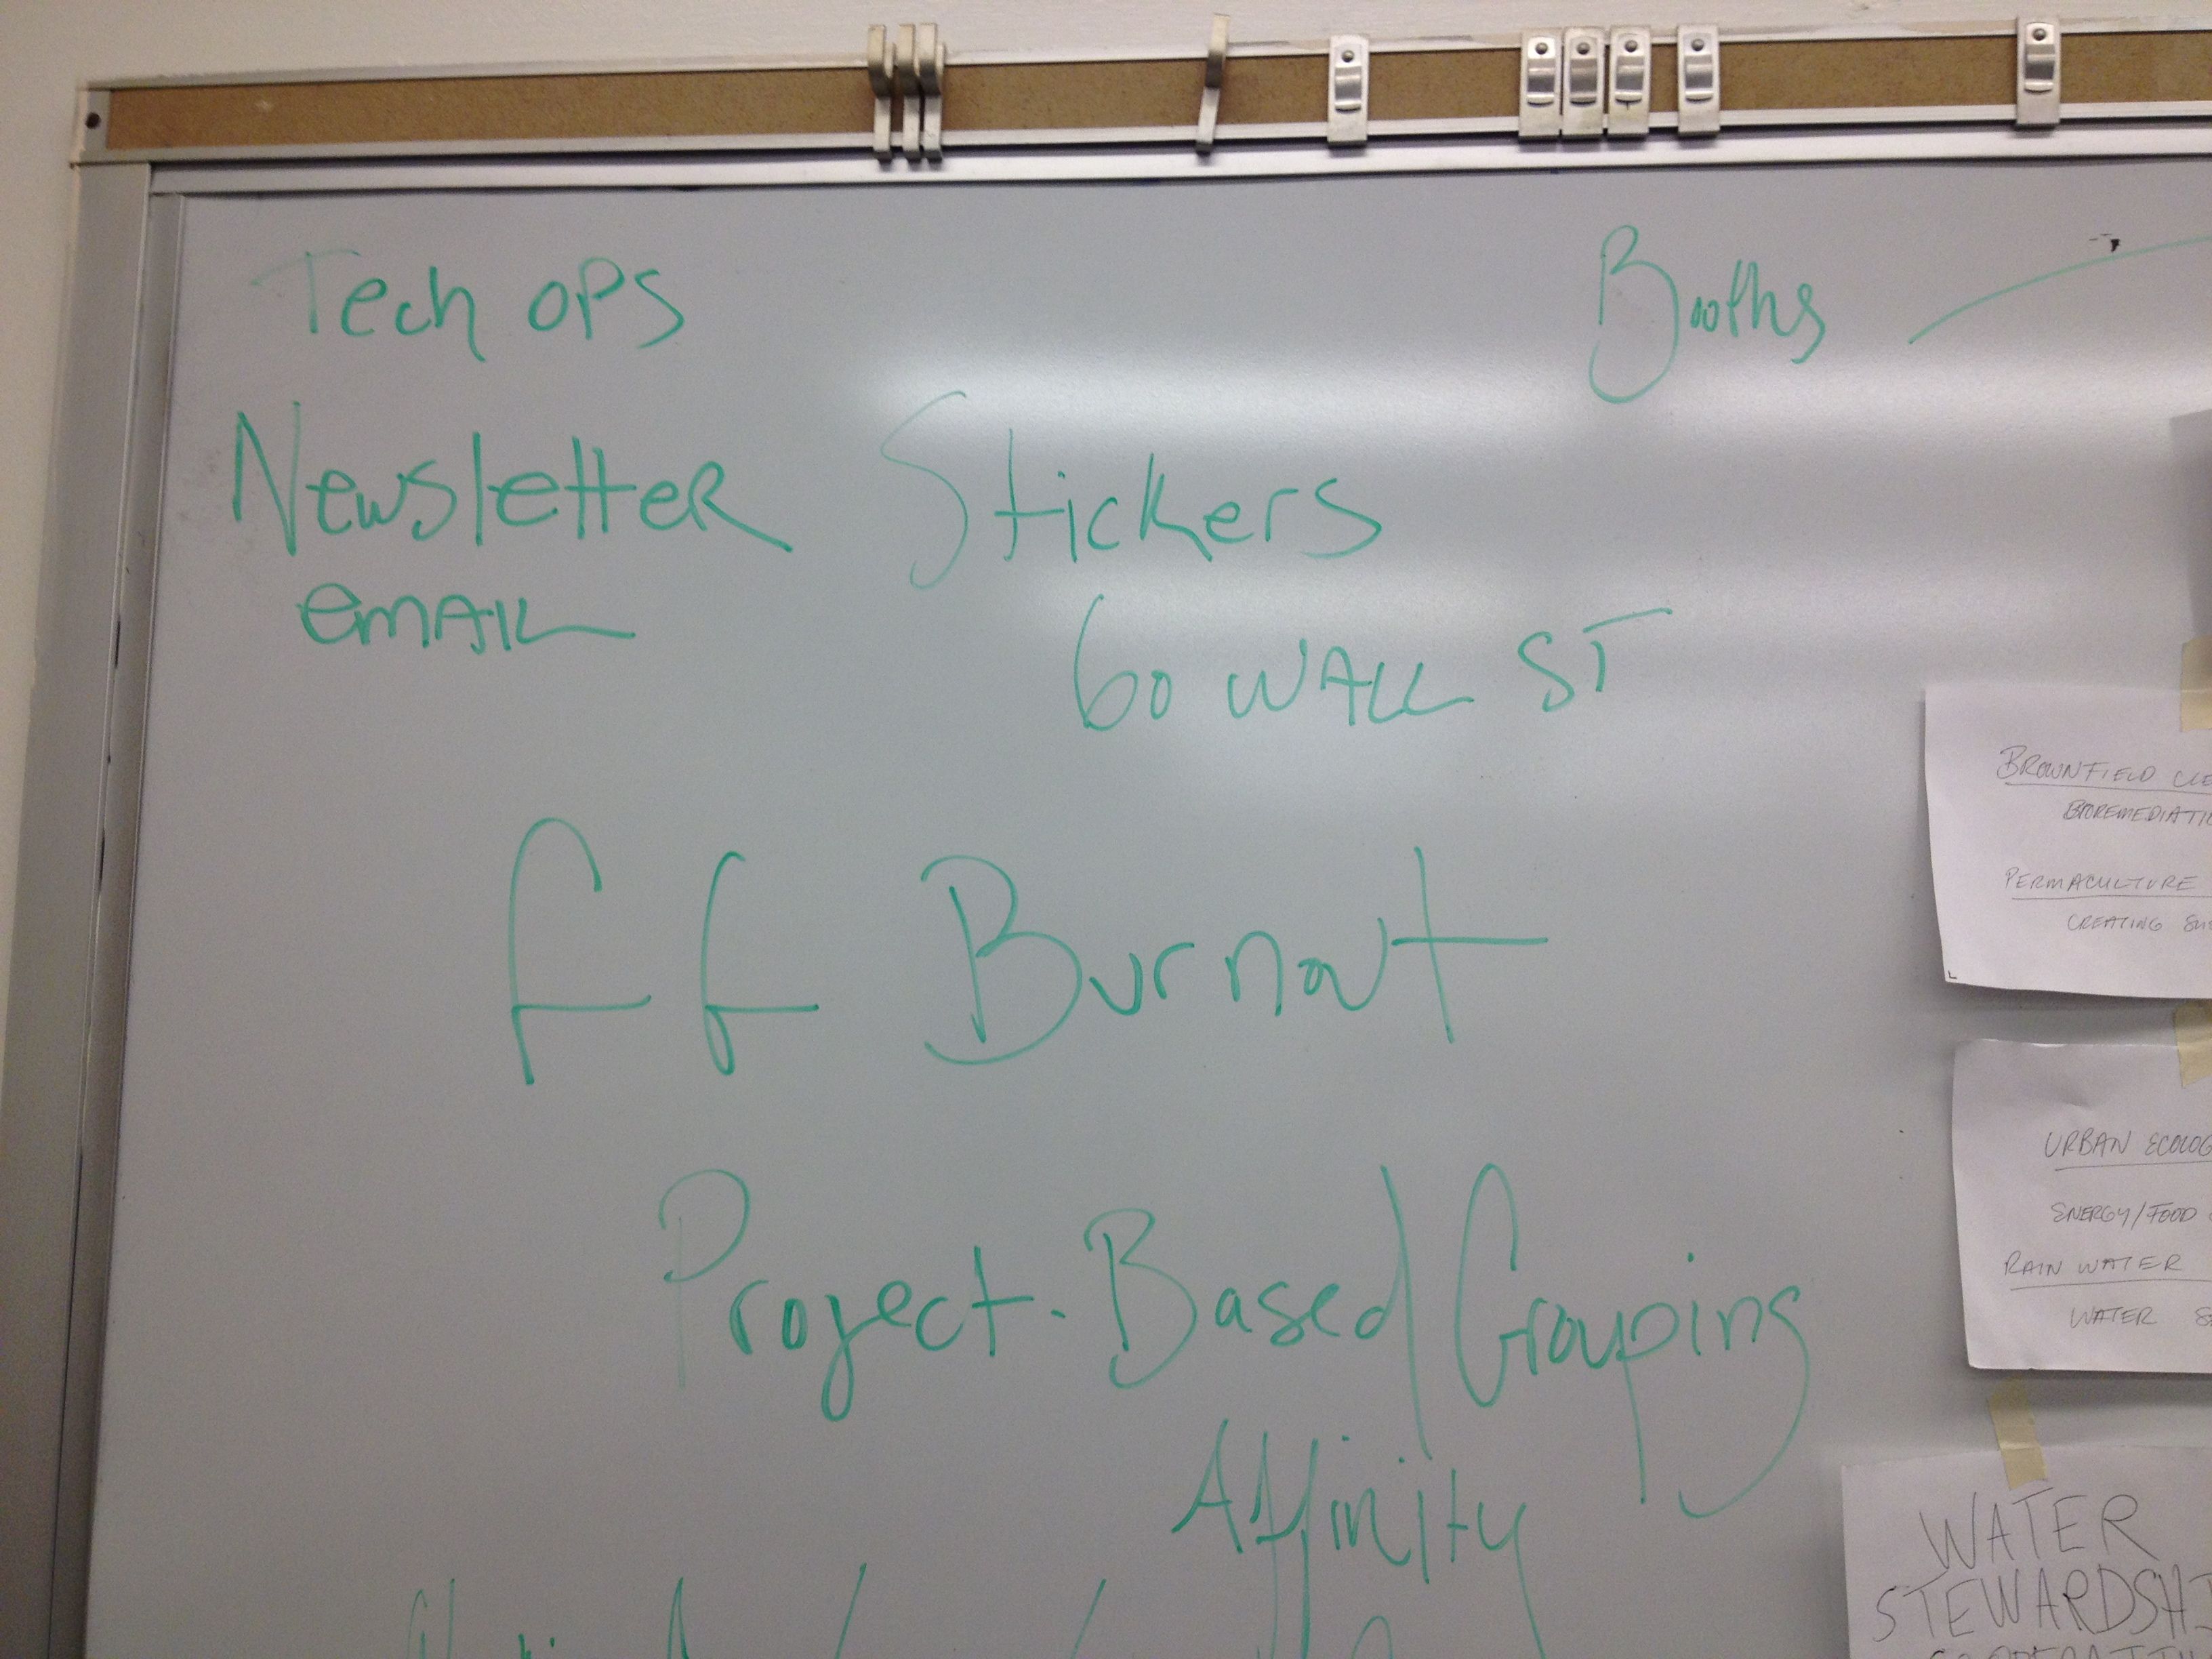 Tech OPS
Booths
Newsletter Stickers
email
60 WALL ST
ff Burnout
Project-Based Grouping
Affinity
BROWNFIELD CLE
BIOREMEDIATIO
PERMACULTURE
CREATING SUS
URBAN ECOLOG
ENERGY/FOOD
RAIN WATER
WATER
WATER
STEWARDSHI